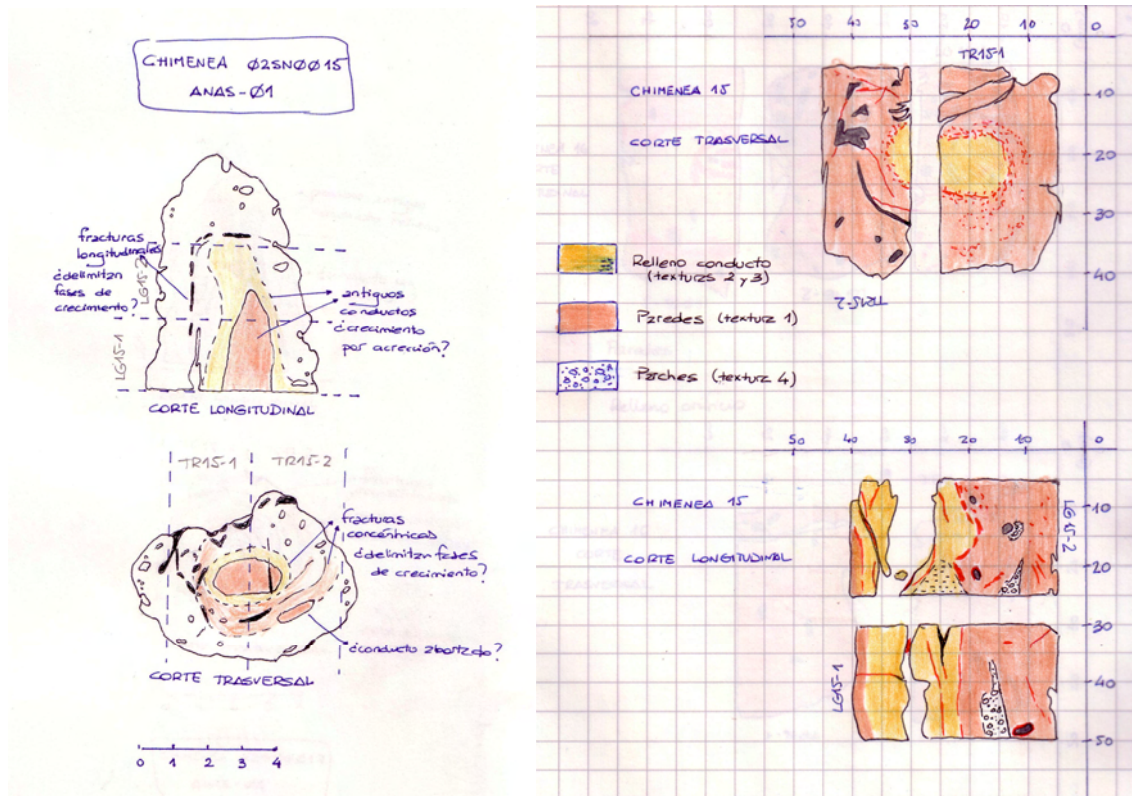 CHIMENEA Ø2SNØØ15
ANAS-Ø1
fracturas
longitudinales
¿delimitan
fases de
crecimiento?
LG15-2
LG15-1
antiguos
conductos
¿crecimiento
por acreción?
CORTE LONGITUDINAL
TR15-1 TR15-2
fracturas
concéntricas
¿delimitan fases
de crecimiento?
¿conducto abortado?
CORTE TRASVERSAL
0 1 2 3 4
50 40 30 20 10 0
TR15-1
CHIMENEA 15
CORTE TRASVERSAL
10
20
30
40
TR15-2
Relleno conducto
(texturas 2 y 3)
Paredes (textura 1)
Parches (textura 4)
50 40 30 20 10 0
CHIMENEA 15
CORTE LONGITUDINAL
LG15-2
10
20
30
40
50
LG15-1